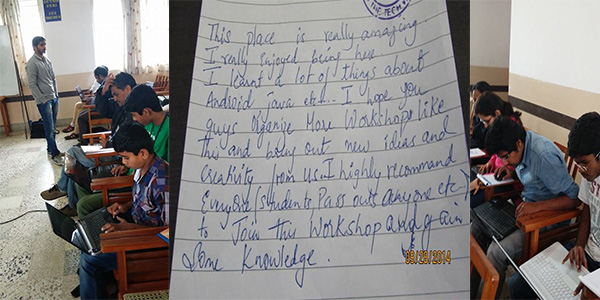 THE TECH
This place is really amazing.
I really enjoyed being here
I learnt a lot of things about
Android java etc... I hope you
guys Organise More Workshops like
this and bring out new ideas and
Creativity from us. I highly recommend
Everyone (students Pass outs anyone etc-)
to Join this Workshop and gain
Some Knowledge.
09/28/2014